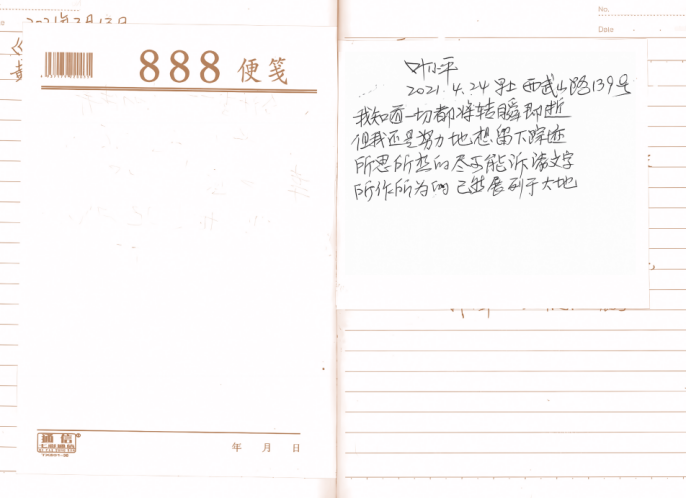 2021年3月13日
888 便笺
通信
年 月 日
No.
Date
叶小平
2021.4.24 早上 西武山路139号
我知道一切都将转瞬即逝
但我还是努力地想留下踪迹
所思所想的尽可能诉诸文字
所作所为的已然展列于大地